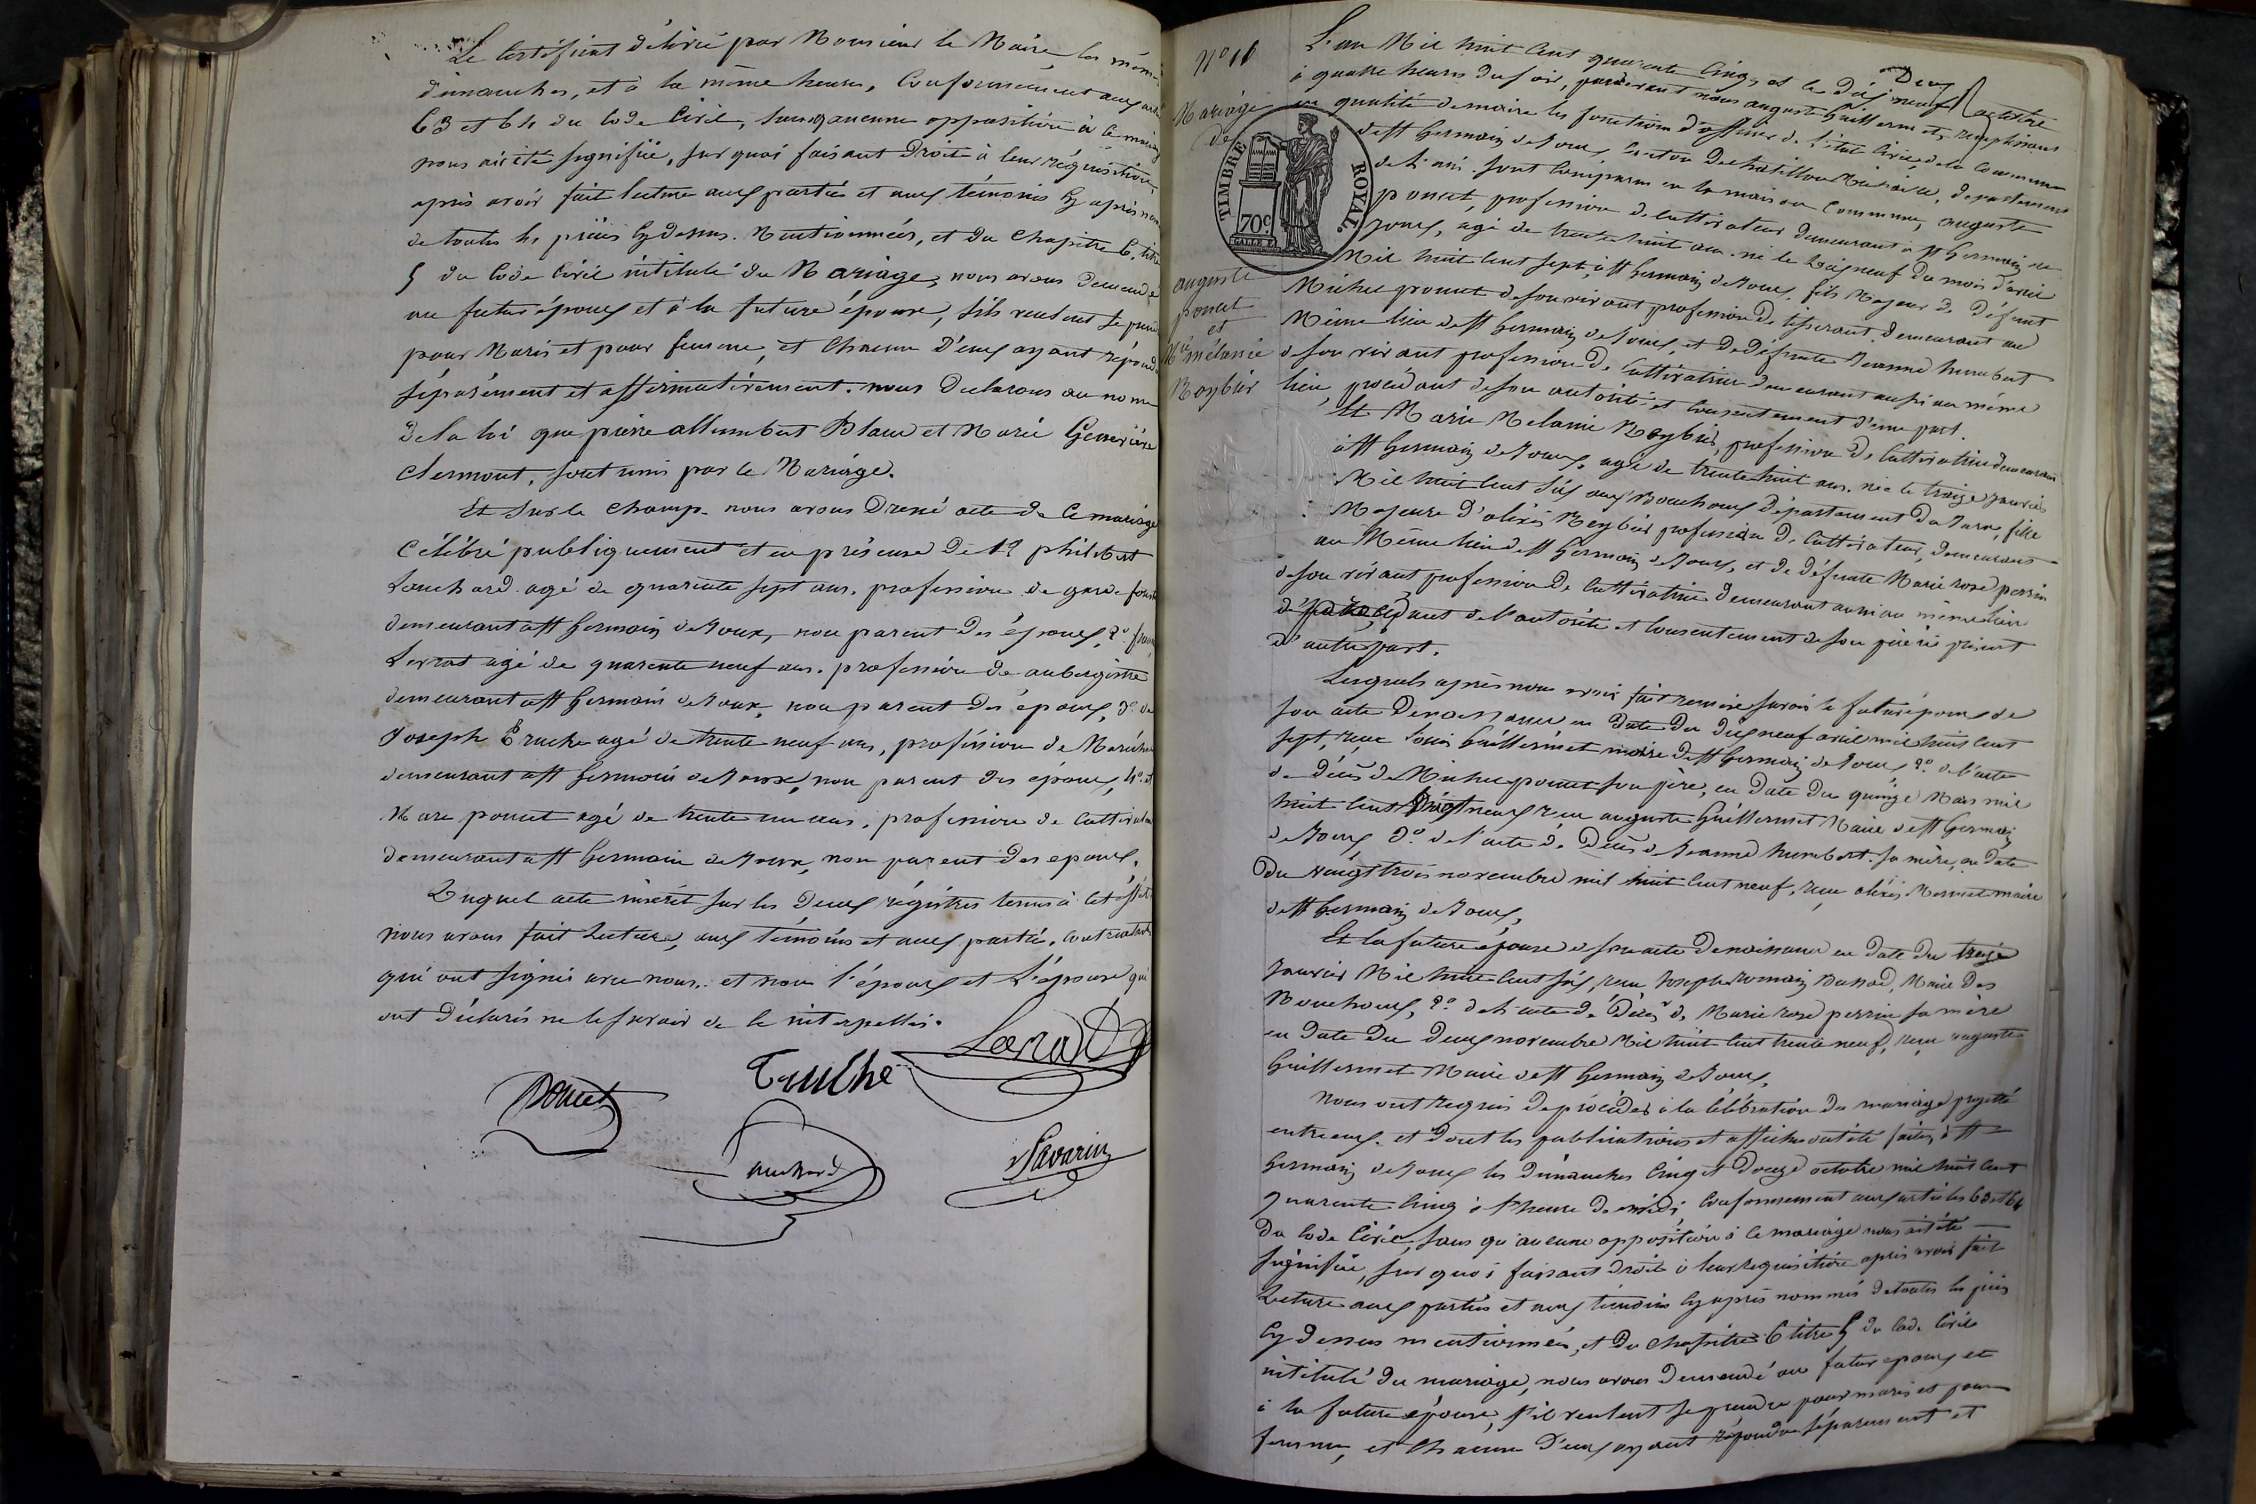 Le Certificat délivré par Monsieur le Maire, les mêmes
dimanches, et à la même heure, Conformément aux
63 et 64 du Code Civil, sans qu'aucune opposition à ce mariage
nous ait été signifiée, sur quoi faisant Droit à leur réquisition,
après avoir fait lecture aux parties et aux témoins Cy après
de toutes les pièces Cy dessus. Mentionnées, et du Chapitre 6, titre
5 du Code Civil intitulé du Mariage, nous avons Demandé
au futur époux et à la future épouse, s'ils veulent se
pour Maris et pour femme, et Chacun D'eux ayant répondu
séparément et affirmativement. nous Declarons au nom
de la loi que pierre allumbert Blanc et Marie
Clermont, sont unis par le Mariage.
Et sur le Champ. nous avons Dressé acte de Ce mariage
Célébré publiquement et en présence De 1° philibert
Louchard agé de quarente sept ans, profession de garde
demeurant à St Germain de Joux, non parent des époux, 2°
Levrat agé de quarente neuf ans. profession de aubergiste
demeurant à St Germain de Joux, non parent Des époux, 3°
Joseph Truche agé de trente neuf ans, profession de
demeurant à St Germain de Joux, non parent des époux, 4°
Marc poncet agé de trente un ans, profession de Cultivateur
demeurant à St Germain de Joux, non parent des époux.
Duquel acte inscrit sur les Deux régistres tenus à Cet
nous avons fait Lecture, aux témoins et aux parties. Contractantes
qui ont signés avec nous. et non l'époux et L'épouse qui
ont Déclarés ne le savoir de Ce interpellés.
Levrat
Poncet Truche
Louchard Savarin
N° 16
Mariage
de
auguste
poncet
et
Mie mélanie
Reybier
TIMBRE ROYAL.
70c.
L'an Mil huit Cent quarente Cinq, et le Dix neuf octobre
Deux
à quatre heures du soir, pardevant nous auguste Guillermet, remplissant
en qualité de maire les fonctions d'officier de l'état Civil, de la Commune
de St Germain de Joux Canton De Chatillon Michaille, departement
de l'ain. sont Comparus en la maison Commune, auguste
poncet, profession de Cultivateur demeurant à St Germain de
joux, agé de trente huit ans. né le Dix neuf du mois d'avril
Mil huit Cent sept, à St Germain de Joux, fils Majeur de Défunt
Michel poncet de son vivant profession de tisserant demeurant au
Même lieu de St Germain de Joux, et De défunte Jeanne humbert
de son vivant profession De Cultivatrice demeurant aussi au même
lieu, procédant de son autorité et Consentement d'une part.
Et Marie Melanie Reybier, profession De Cultivatrice demeurant
à St Germain de Joux, agé de trente huit ans. née le treize janvier
Mil huit Cent six aux Bouchoux Département du Jura, fille
Majeure D'alixis Reybier profession de Cultivateur, demeurant
au Même lieu de St Germain de Joux, et de défunte Marie rose perrin
de son vivant profession De Cultivatrice Demeurant aussi au même lieu
procédant de l'autorité et Consentement de son père ici présent
D'autre part.
Lesquels après nous avoir fait remise savoir le futur époux de
son acte De naissance en Date Du Dix neuf avril mil huit Cent
sept, reçu Louis Guillermet maire de St Germain de Joux 2° de l'acte
de Décès de Michel poncet son père, en Date Du quinze Mars mil
huit Cent neuf reçu auguste Guillermet Maire de St Germain
de Joux 3° de l'acte de Décès de Jeanne humbert. sa mère, en Date
Du vingt trois novembre mil huit Cent neuf, reçu alixis Mermet maire
de St Germain de Joux,
Et la future épouse de son acte De naissance en Date Du treize
Janvier Mil huit Cent six, reçu Joseph romain Maire Des
Bouchoux, 2° de l'acte de Décès de Marie rose perrin sa mère
en Date Du Deux novembre Mil huit Cent trente neuf, reçu auguste
Guillermet Maire de St Germain de Joux,
Nous ont requis de procéder à la Célébration du mariage projetté
entre eux. et Dont les publications et affiches ont été faites à St
Germain de Joux les Dimanches Cinq et Douze octobre mil huit Cent
quarente Cinq à l'heure de midi, Conformement aux articles 63 et 64
Du Code Civil, sans qu'aucune opposition à Ce mariage nous ait été
signifiée, sur quoi faisant Droit à leur requisition après avoir fait
Lecture aux parties et aux témoins Cy après nommés de toutes les pièces
Cy dessus mentionnées, et Du Chapitre 6 titre 5 du Code Civil
intitulé du mariage, nous avons Demandé au futur époux et
à la future épouse, s'il veulent se prendre pour maris et pour
femme, et Chacun D'eux ayant répondu séparement et